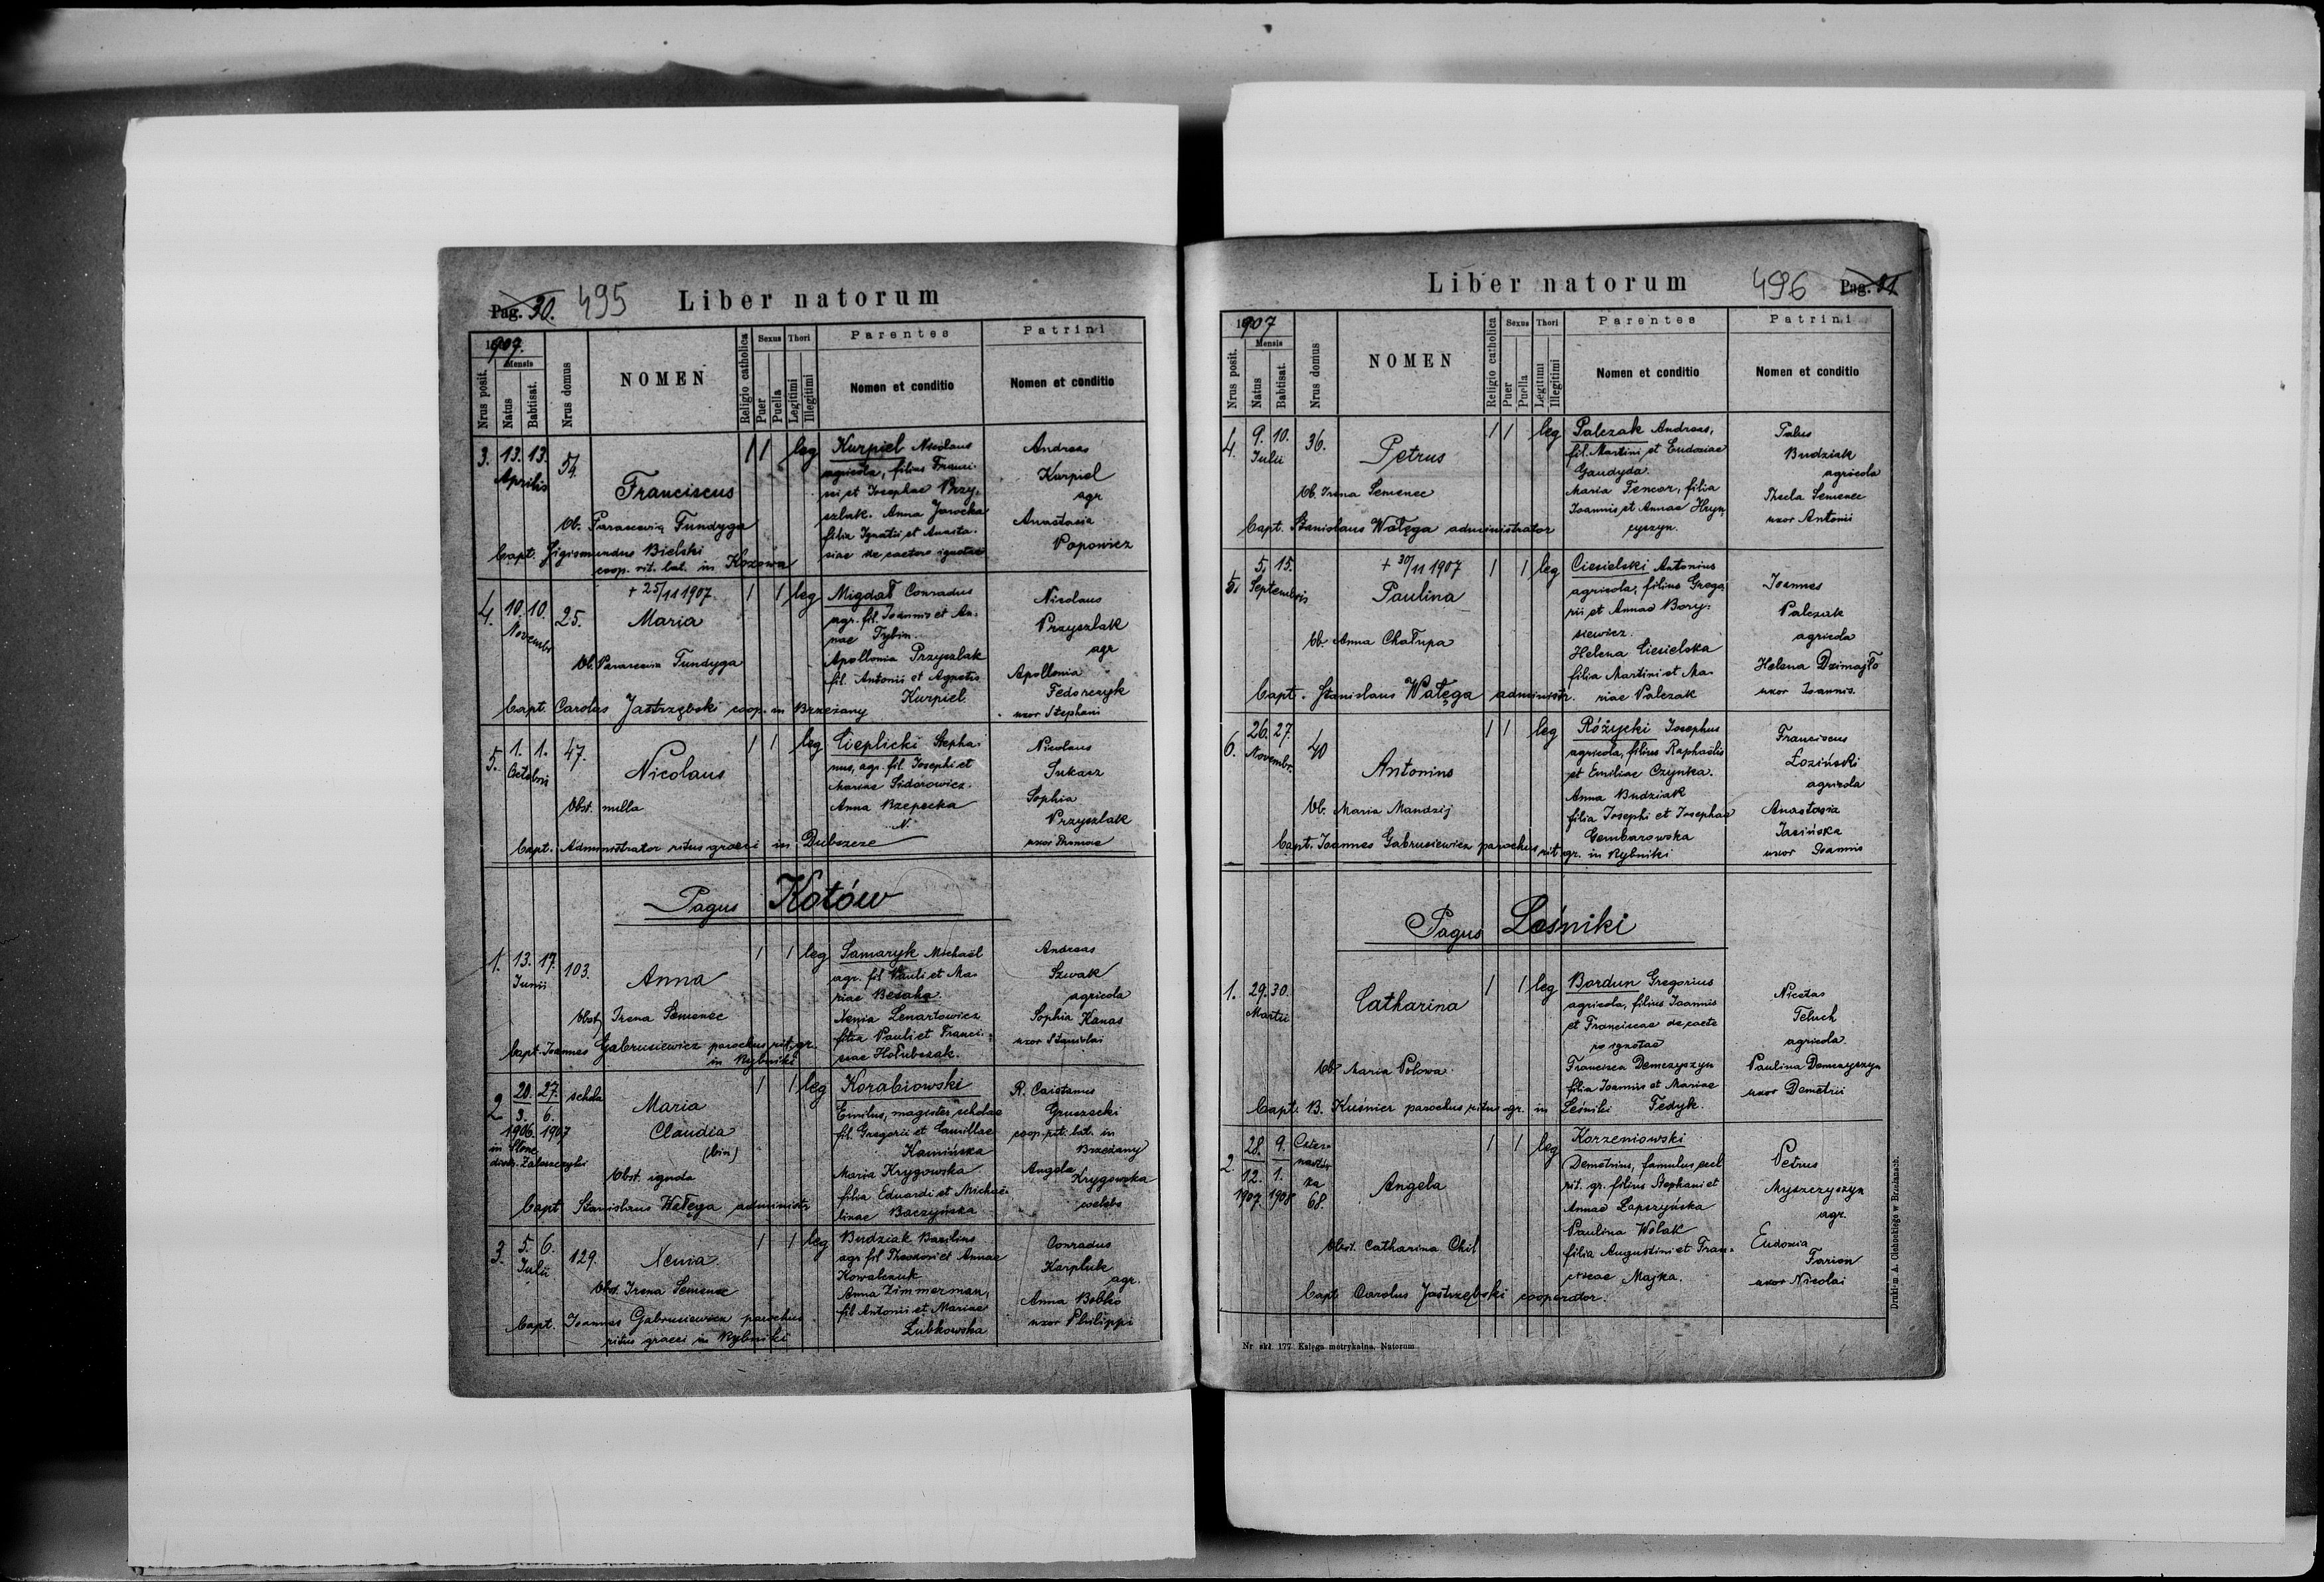 Pag. 30. 495 Liber natorum
1907.
Mensis
Nrus posit.
Natus
Babtisat.
Nrus domus
NOMEN
Religio catholica
Sexus
Puer
Puella
Thori
Legitimi
Illegitimi
Parentes
Nomen et conditio
Patrini
Nomen et conditio
3. 13. 13. Aprilis 54.
Franciscus
Ob. Parascevia Fundyga
bapt. Sigismundus Bielski
coop. rit. lat. in Kozowa
1 1 leg
Kurpiel Nicolaus
agricola, filius Franci-
sci et Josephae Przy-
szlak. Anna Jawecka
filia Ignatii et Anasta-
siae de caetero ignotae
Andreas
Kurpiel
agr
Anastasia
Popowicz
4. 10. 10. Novembr 25.
+ 25/11 1907
Maria
Ob. Parascevia Fundyga
bapt. Carolus Jastrzębski coop. in Brzeżany
1 1 leg
Migdał Conradus
agr. fil. Joannis et An-
nae Tybin.
Apollonia Przyszlak
fil. Antonii et Agnetis
Kurpiel
Nicolaus
Przyszlak
agr
Apollonia
Fedorczyk
uxor Stephani
5. 1. 1. Octobris 47.
Nicolaus
Obst. nulla
bapt. Administrator ritus graeci in Dubszcze
1 1 leg
Cieplicki Stepha-
nus, agr. fil. Josephi et
Mariae Sidorowicz.
Anna Rzepecka
N.
Nicolaus
Łukasz
Sophia
Przyszlak
uxor
Pagus Kotów
1. 13. 17. Junii 103.
Anna
Obst. Irena Semenec
bapt. Joannes Gabrusiewicz parochus rit. gr.
in Rybniki
1 1 leg
Samaryk Michaël
agr. fil Pauli et Ma-
riae Besaha.
Xenia Lenartowicz
filia Pauli et Franci-
scae Hołubczak.
Andreas
Szwak
agricola
Sophia Kanas
uxor Stanislai
2 20. 27. schola
3. 6.
1906. 1907
in Słone
distr. Zaleszczyki
Maria
Claudia
(bin)
Obst. ignota
bapt Stanislaus Wałęga administr
1 1 leg
Korabiowski
Emilus, magister scholae
fil. Gregorii et Camillae
Kamińska
Maria Krygowska
filia Eduardi et Michae-
linae Baczyńska
R. Caietanus
Gruszecki
coop. rit. lat. in
Brzeżany
Angela
Krygowska
coelebs
3. 5. 6. Julii 129.
Xenia
Obst. Irena Semenec
bapt. Joannes Gabrusiewicz parochus
ritus graeci in Rybniki
1 1 leg
Budziak Basilius
agr. fil. Theodori et Annae
Kowalczuk
Anna Zimmerman,
fil Antonii et Mariae
Łubkowska
Conradus
Karpluk
agr.
Anna Bobko
uxor Philippi
Liber natorum 496 Pag. 31
1907
Mensis
Nrus posit.
Natus
Babtisat.
Nrus domus
NOMEN
Religio catholica
Sexus
Puer
Puella
Thori
Legitimi
Illegitimi
Parentes
Nomen et conditio
Patrini
Nomen et conditio
4. 9. 10. Julii 36.
Petrus
Ob. Irena Semenec
bapt. Stanislaus Wałęga administrator
1 1 leg
Palczak Andreas,
fil. Martini et Eudoxiae
Gaudyda.
Maria Fencor, filia
Joannis et Annae Hryn-
cyszyn.
Budziak
agricola
Thecla Semenec
uxor Antonii
5. 5. 15. Septembris
+ 30/11 1907
Paulina
Ob. Anna Chałupa
bapt. Stanislaus Wałęga administr.
1 1 leg
Ciesielski Antonius
agricola, filius Grego-
rii et Annae Bory-
siewicz.
Helena Ciesielska
filia Martini et Ma-
riae Palczak
Joannes
Palczak
agricola
Helena Dzimajło
uxor Joannis.
6. 26. 27. Novembr. 40
Antonius
Ob. Maria Mandzij
bapt. Joannes Gabrusiewicz parochus rit gr. in Rybniki
1 1 leg
Różycki Josephus
agricola, filius Raphaëlis
et Emiliae Czynka.
Anna Budziak
filia Josephi et Josephae
Gembarowska
Franciscus
Łoziński
agricola
Anastasia
Jasińska
uxor Joannis
Pagus Leśniki
1. 29. 30. Martii
Catharina
Ob. Maria Polowa.
bapt. B. Kuśnier parochus ritus gr. in Leśniki
1 1 leg
Bordun Gregorius
agricola, filius Joannis
et Franciscae de caete
ro ignotae
Francisca Demczyszyn
filia Joannis et Mariae
Fedyk.
Nicetas
Peluch
agricola.
Paulina Demczyszyn
uxor Demetrii
2. 28. 9.
12. 1.
1907. 1908 68.
Angela
Obst. Catharina Chil
bapt. Carolus Jastrzębski cooperator.
1 1 leg
Korzeniowski
Demetrius, famulus eccl
rit. gr. filius Stephani et
Annae Łapszyńska
Paulina Wolak
filia Augustini et Fran-
ciscae Majka.
Petrus
Myszczyszyn
agr.
Eudoxia
Farion
uxor Nicolai
Nr. skł. 177. Księga metrykalna. Natorum
Drukiem A. Cichockiego w Brzeżanach.